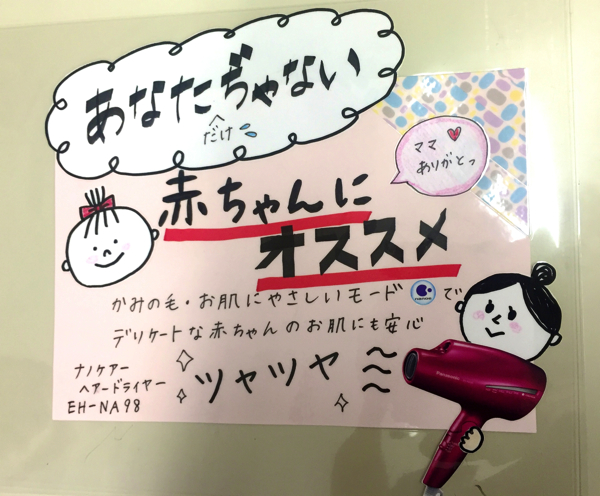 あなただけぢゃない
赤ちゃんに
オススメ
ママ
ありがとっ
かみの毛・お肌にやさしいモードで
デリケートな赤ちゃんのお肌にも安心
ツヤツヤ
ナノケアー
ヘアードライヤー
EH-NA98
Panasonic